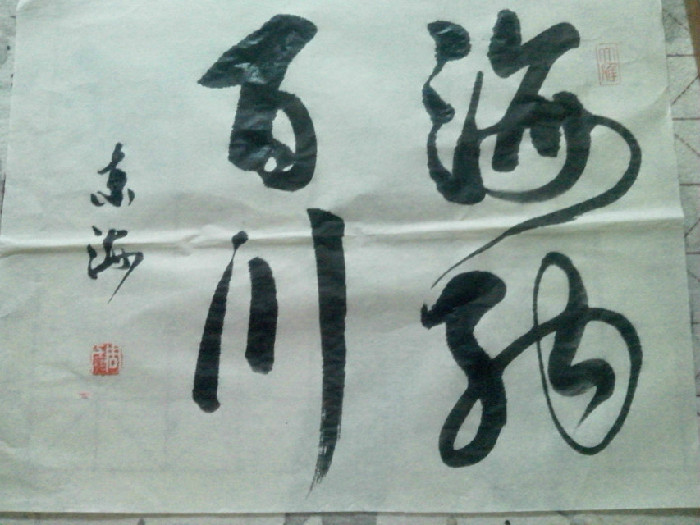 海纳
百川
东海